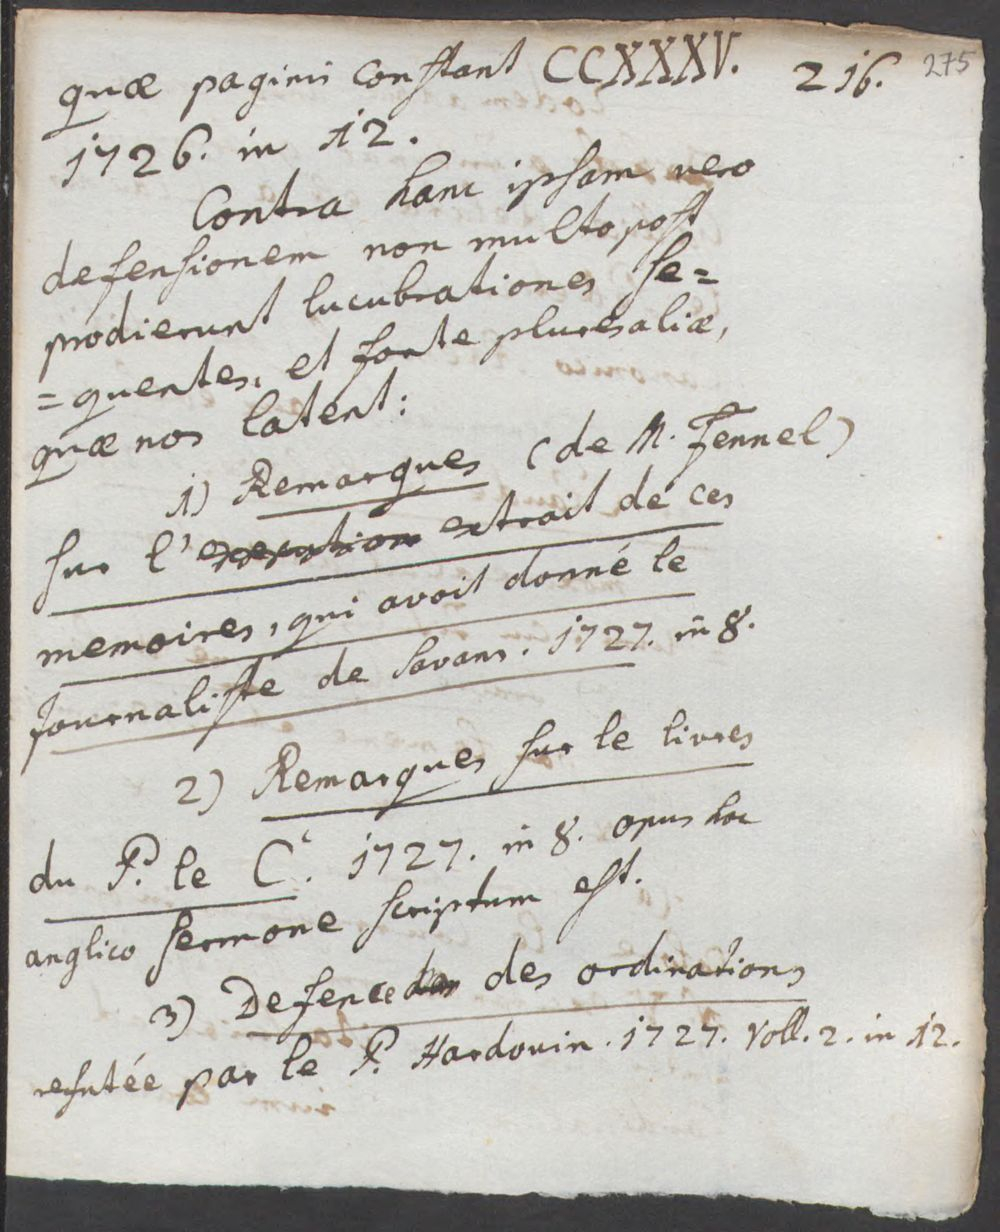 275
quæ paginis constant CCXXXV. 216.
1726. in 12.
Contra hanc ipsam vero
defensionem non multo post
prodierunt lucubrationes se=
=quentes, et forte plures aliæ,
quæ nos latent:
1) Remarques (de M. Fennel)
sur l' extrait de ces
memoires, qui avoit donné le
Journaliste de Savans. 1727. in 8.
2) Remarques sur le livres
du P. le C. 1727. in 8. opus hoc
anglico sermone scriptum est.
3) Defence des ordinations
refutée par le P. Hardouin. 1727. Voll. 2. in 12.